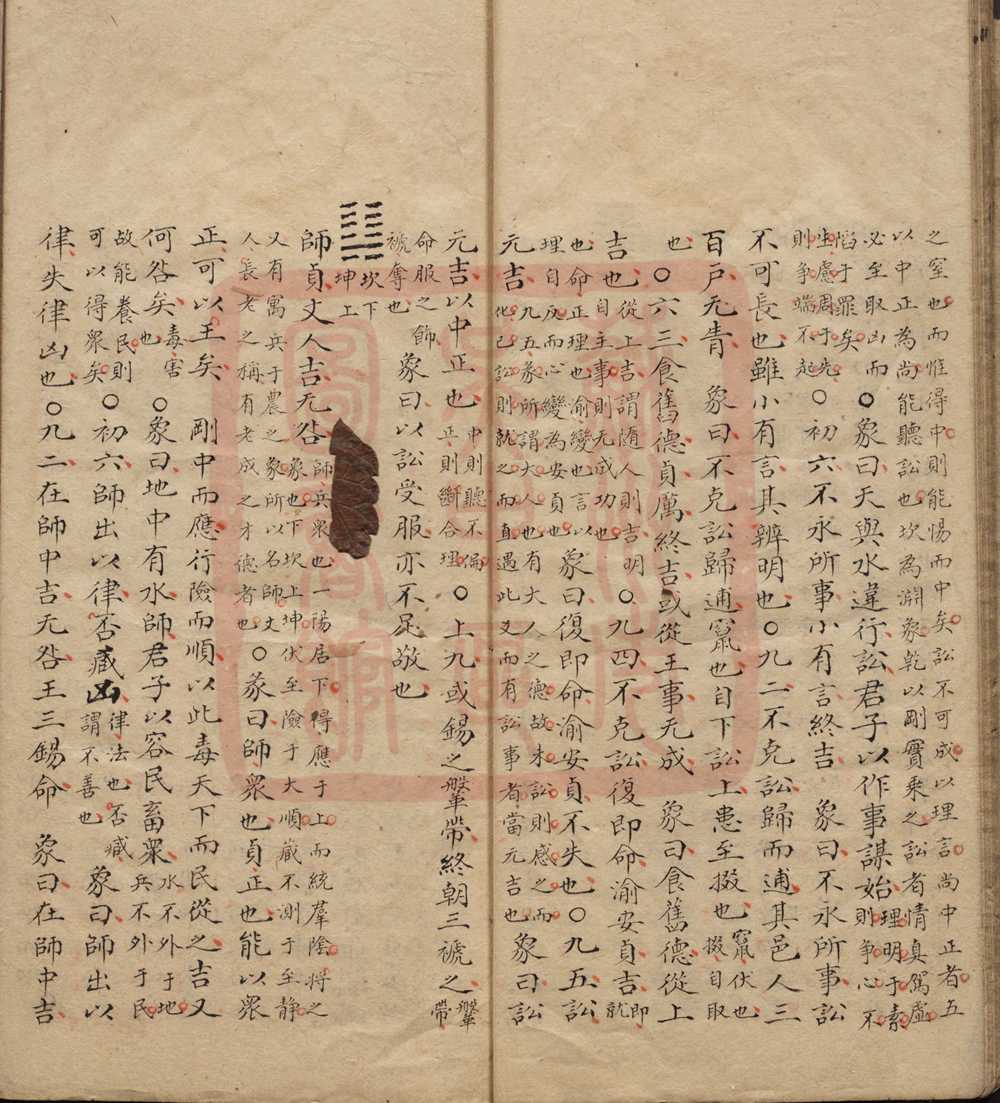 之窒也而惟得中則能惕而中矣訟不可成以理言尚中正者五
以中正為尚能聽訟也坎為淵象乾以剛實乘之訟者情真駕虛
必至取凶而
陷于罪矣
○象曰天與水違行訟君子以作事謀始
理明于素
則爭心不
生慮周于先
則爭端不起
○初六不永所事小有言終吉　象曰不永所事訟
不可長也雖小有言其辨明也○九二不克訟歸而逋其邑人三
百戶无眚　象曰不克訟歸逋竄也自下訟上患至掇也
竄伏也
掇自取
也○六三食舊德貞厲終吉或從王事无成　象曰食舊德從上
吉也
從上吉謂隨人則吉明
自主事則无成功也
○九四不克訟復即命渝安貞吉
即
就
也命正理也渝變也言以
理自反而心變為安貞也
象曰復即命渝安貞不失也○九五訟
元吉
九五象所謂大人也有大人之德故未訟則感之而
化已訟則就之而直遇此爻而有訟事者當元吉也
象曰訟
元吉以中正也
中則聽不偏
正則斷合理
○上九或錫之鞶帶終朝三褫之
鞶
帶
命服之飾
褫奪也
象曰以訟受服亦不足敬也
坎下
坤上
師貞丈人吉无咎
師兵衆也一陽居下得應于上而統羣陰將之
象也下坎上坤伏至險于大順藏不測于至静
又有寓兵于農之象所以名師丈
人長老之稱有老成之才德者也
○彖曰師衆也貞正也能以衆
正可以王矣　剛中而應行險而順以此毒天下而民從之吉又
何咎矣
毒害
也
○象曰地中有水師君子以容民畜衆
水不外于地
兵不外于民
故能養民則
可以得衆矣
○初六師出以律否臧凶
律法也否臧
謂不善也
象曰師出以
律失律凶也○九二在師中吉无咎王三錫命　象曰在師中吉